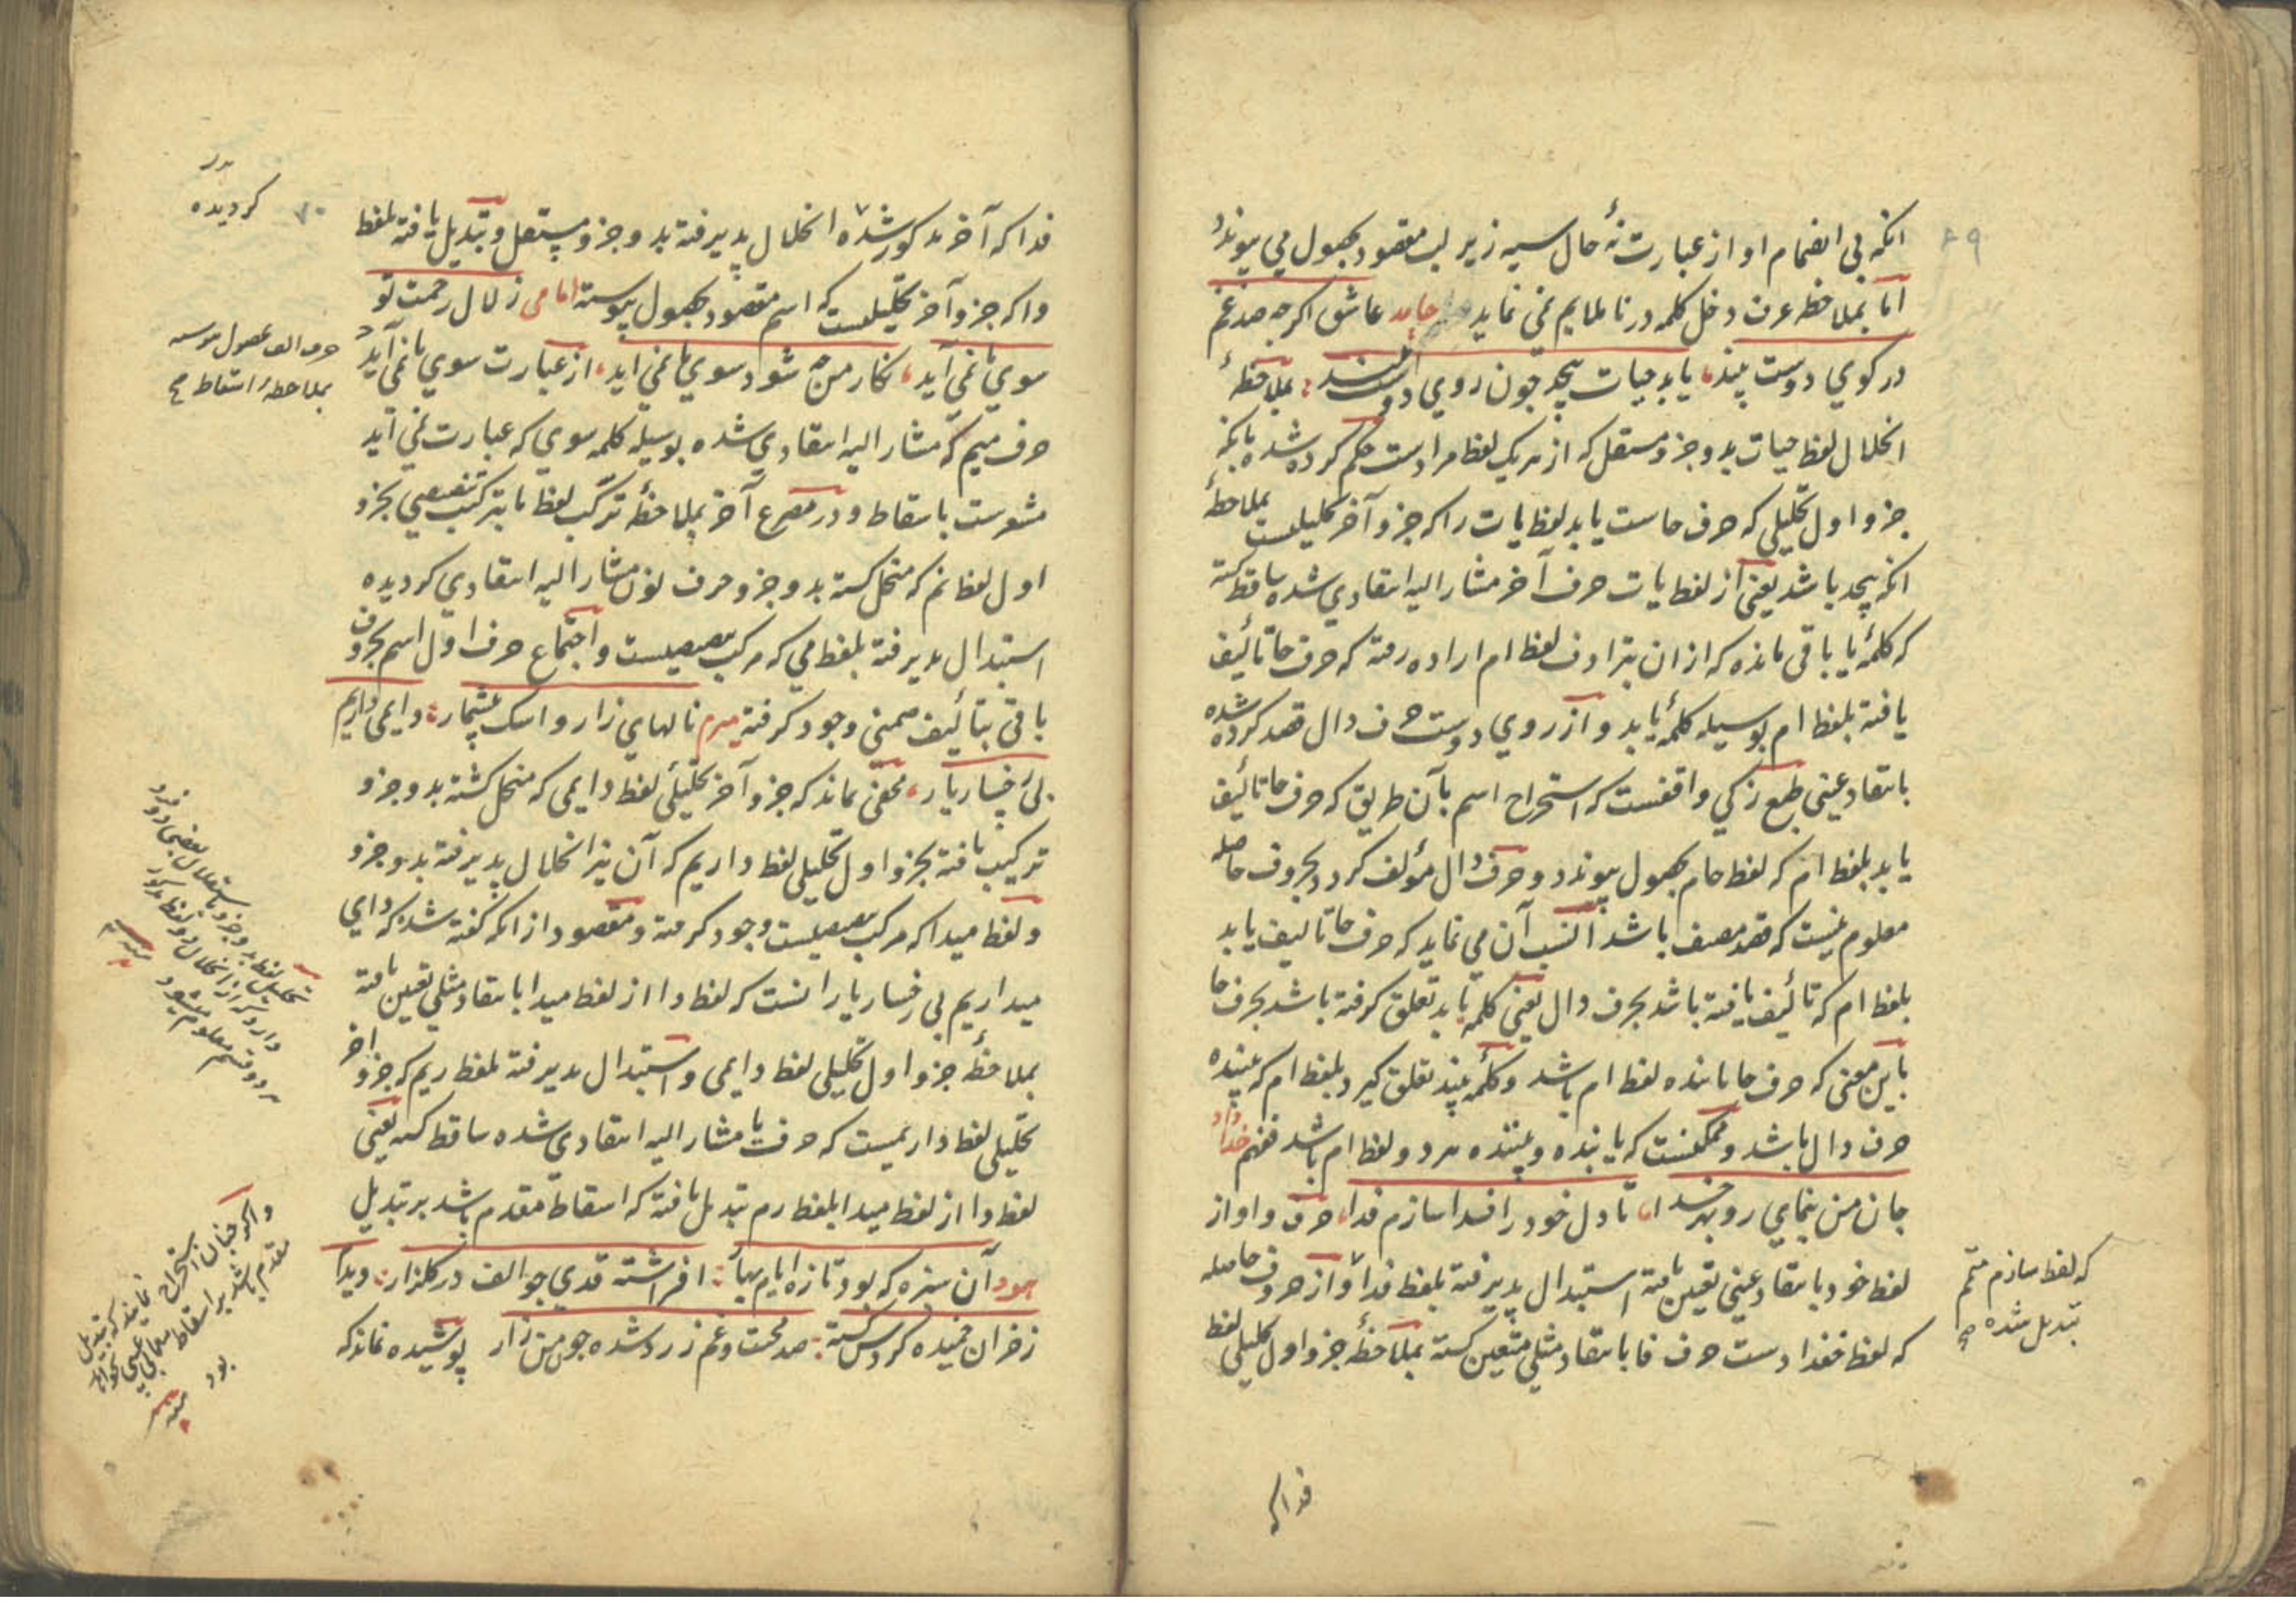 ۶۹
انکه بی انضمام او از عبارت نهٔ حال سیه زیر لب مقصود بحصول می پیوندد
اما بملاحظه عرف دخل کلمه در نا ملایم نمی نماید حامد عاشق اکرچه صد غم
در کوی دوست بیند یابد حیات بیحد چون روی دوست بیند بملاحظهٔ
انحلال لفظ حیات بدو جزو مستقل که از هریک لفظ مرادست حکم کرده شده بانکه
جزو اول تحلیلی که حرف حاست یابد لفظ یات را که جزو آخر تحلیلیست بملاحظهٔ
انکه بیحد باشد یعنی از لفظ یات حرف آخر مشار الیه انتقادی شده ساقط کشته
که کلمهٔ یا باقی مانده که از ان بترادف لفظ ام اراده رفته که حرف حا تألیف
یافته بلفظ ام بوسیله کلمهٔ یابد و از روی دوست حرف دال قصد کرده شده
بانتقاد عینی طبع زکی واقفست که استخراج اسم بآن طریق که حرف حا تألیف
یابد بلفظ ام که لفظ حام بحصول پیوندد و حرف دال مؤلف کردد بحروف حاصله
معلوم نیست که قصد مصنف باشد انسب آن می نماید که حرف حا تالیف یابد
بلفظ ام که تألیف یافته باشد بحرف دال یعنی کلمه یابد تعلق کرفته باشد بحرف حا
باین معنی که حرف حا یابنده لفظ ام باشد و کلمهٔ بیند تعلق کیرد بلفظ ام که بیننده
حرف دال باشد و ممکنست که یابنده و بیننده هر دو لفظ ام باشد فنهم خداداد
جان من بنمای رو بهر خدا تا دل خود را فدا سازم فدا حرف واو از
لفظ خود بانتقاد عینی تعین یافته استبدال پذیرفته بلفظ فدا و از حروف حاصله
که لفظ خفدا دست حرف فا بانتقاد مثلی متعین کشته بملاحظهٔ جزو اول تحلیلی لفظ
که لفظ سازم متمم
تبدیل شده صح
فدا که
۷۰
فدا که آخر مذکور شده انحلال پذیرفته بدو جزو مستقل و تبدیل یافته بلفظ
در
کردیده
دا که جزو آخر تحلیلیست که اسم مقصود بحصول پیوسته امامی زلال رحمت تو
سوی ما نمی آید نکار من چه شود سوی ما نمی اید از عبارت سوی ما نمی آید
حرف الف بحصول پیوسته
بملاحظهٔ اسقاط صح
حرف میم که مشار الیه انتقادی شده بوسیله کلمه سوی که عبارت نمی آید
مشعرست باسقاط و در مصرع آخر بملاحظهٔ ترکب لفظ ما بترکیب تنصیصی بجزو
اول لفظ نم که منحل کشته بدو جزو حرف نون مشار الیه انتقادی کردیده
استبدال پذیرفته بلفظ می که مرکب تنصیصیست و اجتماع حرف اول اسم بحروف
باقی بتألیف ضمنی وجود کرفته میرم نالهای زار و اشک بیشمار دایمی داریم
بی رخسار یار مخفی نماند که جزو آخر تحلیلی لفظ دایمی که منحل کشته بدو جزو
ترکیب یافته بجزو اول تحلیلی لفظ داریم که آن نیز انحلال پذیرفته بدو جزو
و لفظ میدا که مرکب تنصیصیست وجود کرفته و مقصود از انکه کفته شد که دای
میداریم بی رخسار یار انست که لفظ دا از لفظ میدا بانتقاد مثلی تعین یافته
بملاحظهٔ جزو اول تحلیلی لفظ دایمی و استبدال پذیرفته بلفظ ریم که جزو آخر
تحلیلی لفظ داریمست که حرف یا مشار الیه انتقادی شده ساقط کشته یعنی
لفظ دا از لفظ میدا بلفظ رم تبدیل یافته که اسقاط مقدم باشد بر تبدیل
هود آن سبزه که بود تازه ایام بهار افراشته قدی چو الف در کلزار دیدم
ز خزان خمیده کردس کشته صد محنت و غم زرد شده چون من زار پوشیده نماند که
تحلیل لفظ بدو جزو
معلوم میشود
منه
و اکر چنان استخراج نمایند که تبدیل
مقدم باشد بر اسقاط
بود
منه